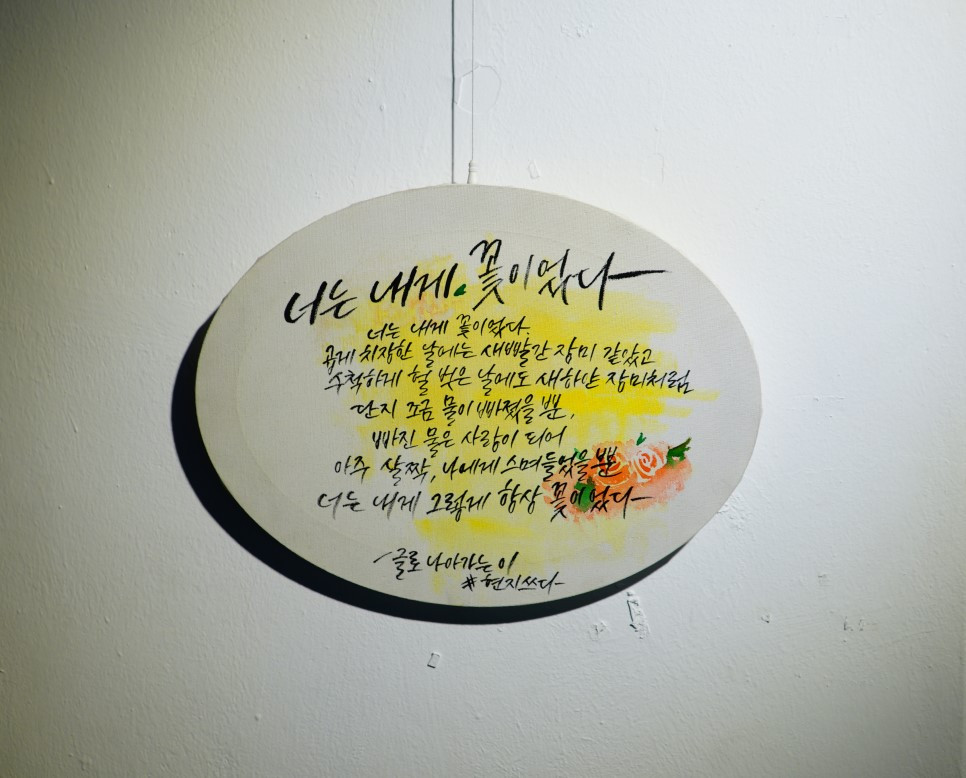 너는 내게 꽃이었다
너는 내게 꽃이었다.
곱게 치장한 날에는 새빨간 장미 같았고
수척하게 헐 벗은 날에도 새하얀 장미처럼
단지 조금 물이 빠졌을 뿐,
빠진 물은 사랑이 되어
아주 살짝, 나에게 스며들었을 뿐
너는 내게 그렇게 항상 꽃이었다
글로 나아가는 이
#현지쓰다